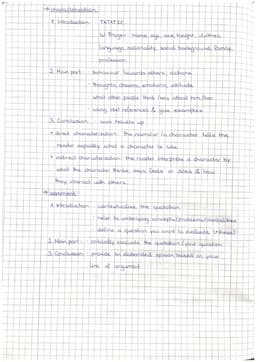 → characterisation
1. Introduction: TATATIC
W-Fragen: name, age, sex, height, clothes,
language, nationality, social background, family,
profession
2. Main part: behaviour towards others, actions
thoughts, dreams, emotions, attitude
what other people think / say about him / her
using text references & give examples
3. Conclusion: sum results up
• direct characterization: the narrator / a character tells the
reader explicitly what a character is like
• indirect characterization: the reader interprets a character by
what the character thinks, says, feels or does & how
they interact with others
→ comment
1. Introduction: contextualize the quotation
refer to underlying concepts/problems/
define a question you want to evaluate
2. Main part: critically evaluate the quotation / your question
3. Conclusion: provide an elaborated opinion based on your
line of argument